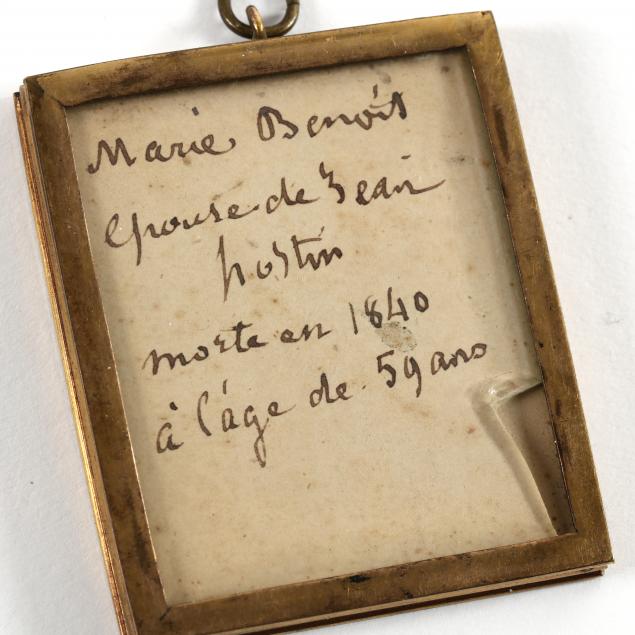 Marie Benoît
épouse de Jean
hostin
morte en 1840
à l'âge de 59 ans